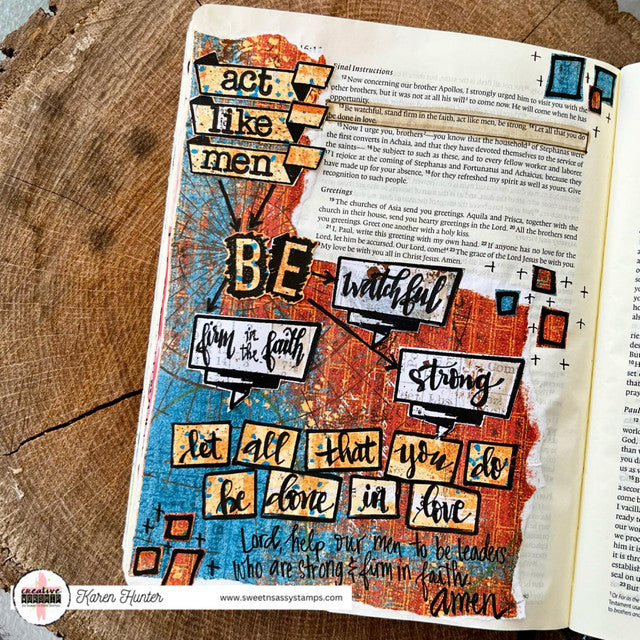 act
like
men
BE
watchful
firm in the faith
strong
let all that you do
be done in love
Lord, help our men to be leaders
who are strong & firm in faith.
amen
Final Instructions
12 Now concerning our brother Apollos, I strongly urged him to visit you with the
other brothers, but it was not at all his will to come now. He will come when he has
opportunity.
13 Be watchful, stand firm in the faith, act like men, be strong. 14 Let all that you do
be done in love.
15 Now I urge you, brothers—you know that the household of Stephanas were
the first converts in Achaia, and that they have devoted themselves to the service of
the saints— 16 be subject to such as these, and to every fellow worker and laborer.
I rejoice at the coming of Stephanas and Fortunatus and Achaicus, because they
have made up for your absence, 18 for they refreshed my spirit as well as yours. Give
recognition to such people.
Greetings
19 The churches of Asia send you greetings. Aquila and Prisca, together with the
church in their house, send you hearty greetings in the Lord. 20 All the brothers
send you greetings. Greet one another with a holy kiss.
21 I, Paul, write this greeting with my own hand. 22 If anyone has no love for the
Lord, let him be accursed. Our Lord, come! 23 The grace of the Lord Jesus be with you.
My love be with you all in Christ Jesus. Amen.
creative
Karen Hunter
www.sweetnsassystamps.com